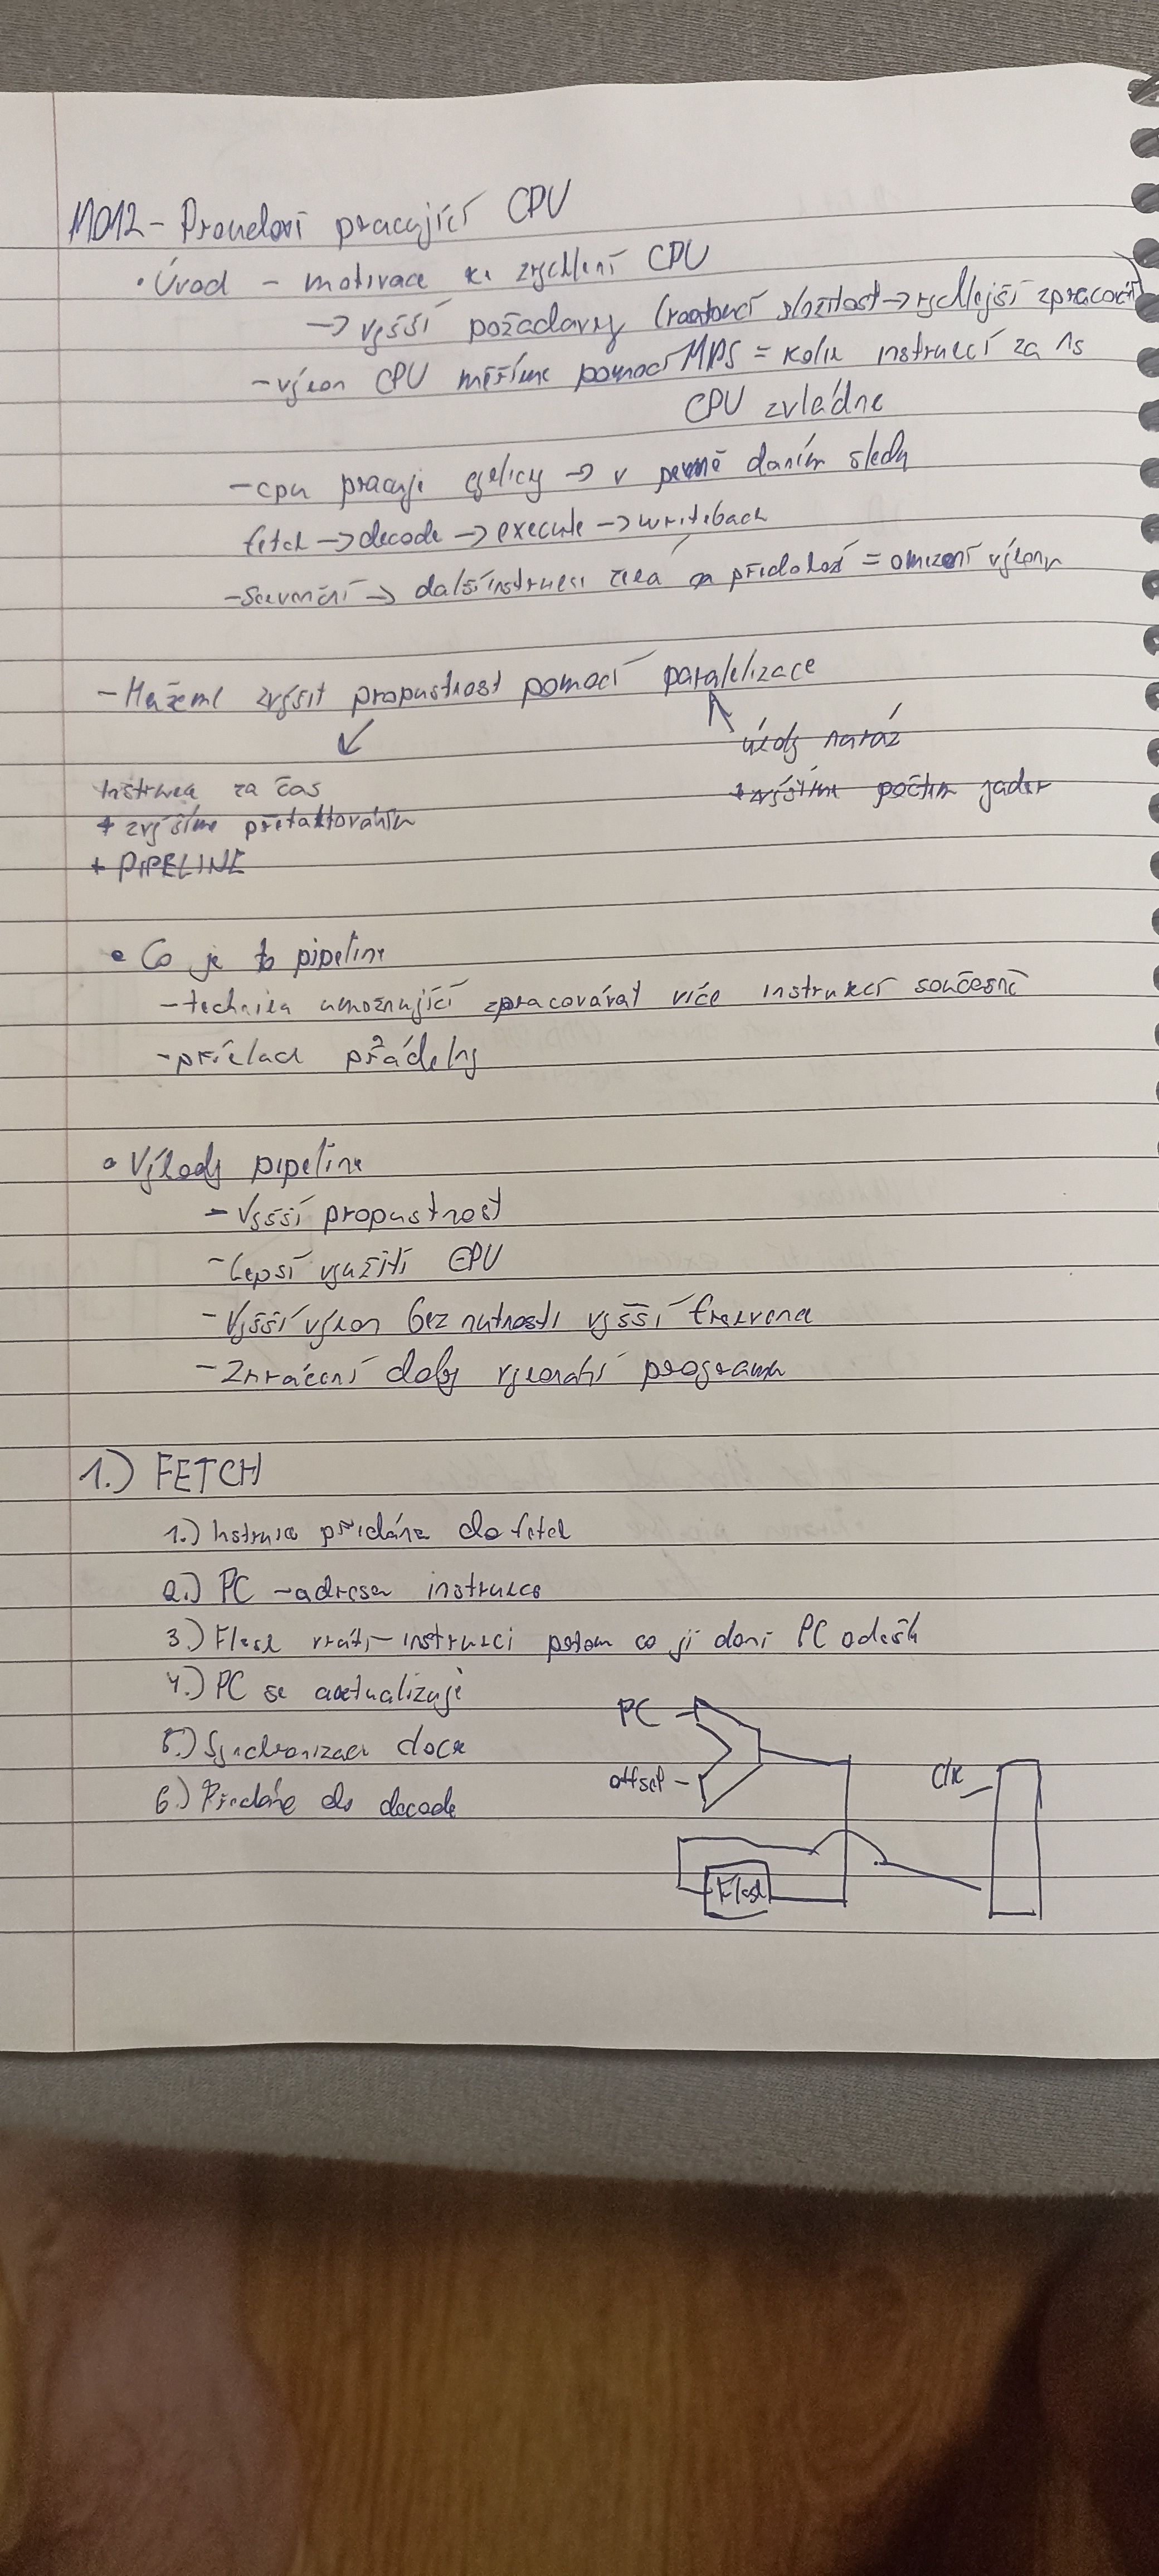 MO12 - Proudově pracující CPU
• Úvod - motivace ke zrychlení CPU
→ vyšší požadavky (rostoucí složitost → rychlejší zpracování)
- výkon CPU měříme pomocí MIPS = kolik instrukcí za 1s
CPU zvládne
- cpu pracuje cyklicky → v pevně daném sledu
fetch → decode → execute → writeback
- Sekvenční → další instrukci čeká na předchozí = omezení výkonu
- Můžeme zvýšit propustnost pomocí paralelizace
úkoly naráz
Instrukce za čas
+ zvýšíme počtem jader
+ zvýšíme přetaktováním
+ PIPELINE
• Co je to pipeline
- technika umožnující zpracovávat více instrukcí současně
- příklad přádelny
• Výhody pipeline
- Vyšší propustnost
- Lepší využití CPU
- Vyšší výkon bez nutnosti vyšší frekvence
- Zkrácení doby vykonání programu
1.) FETCH
1.) Instrukce přidána do fetch
2.) PC - adresa instrukce
3.) Flash vrátí instrukci potom co jí dani PC odešle
4.) PC se aktualizuje
PC
5.) Synchronizace clock
offset
Clk
6.) Předáno do decode
Flash